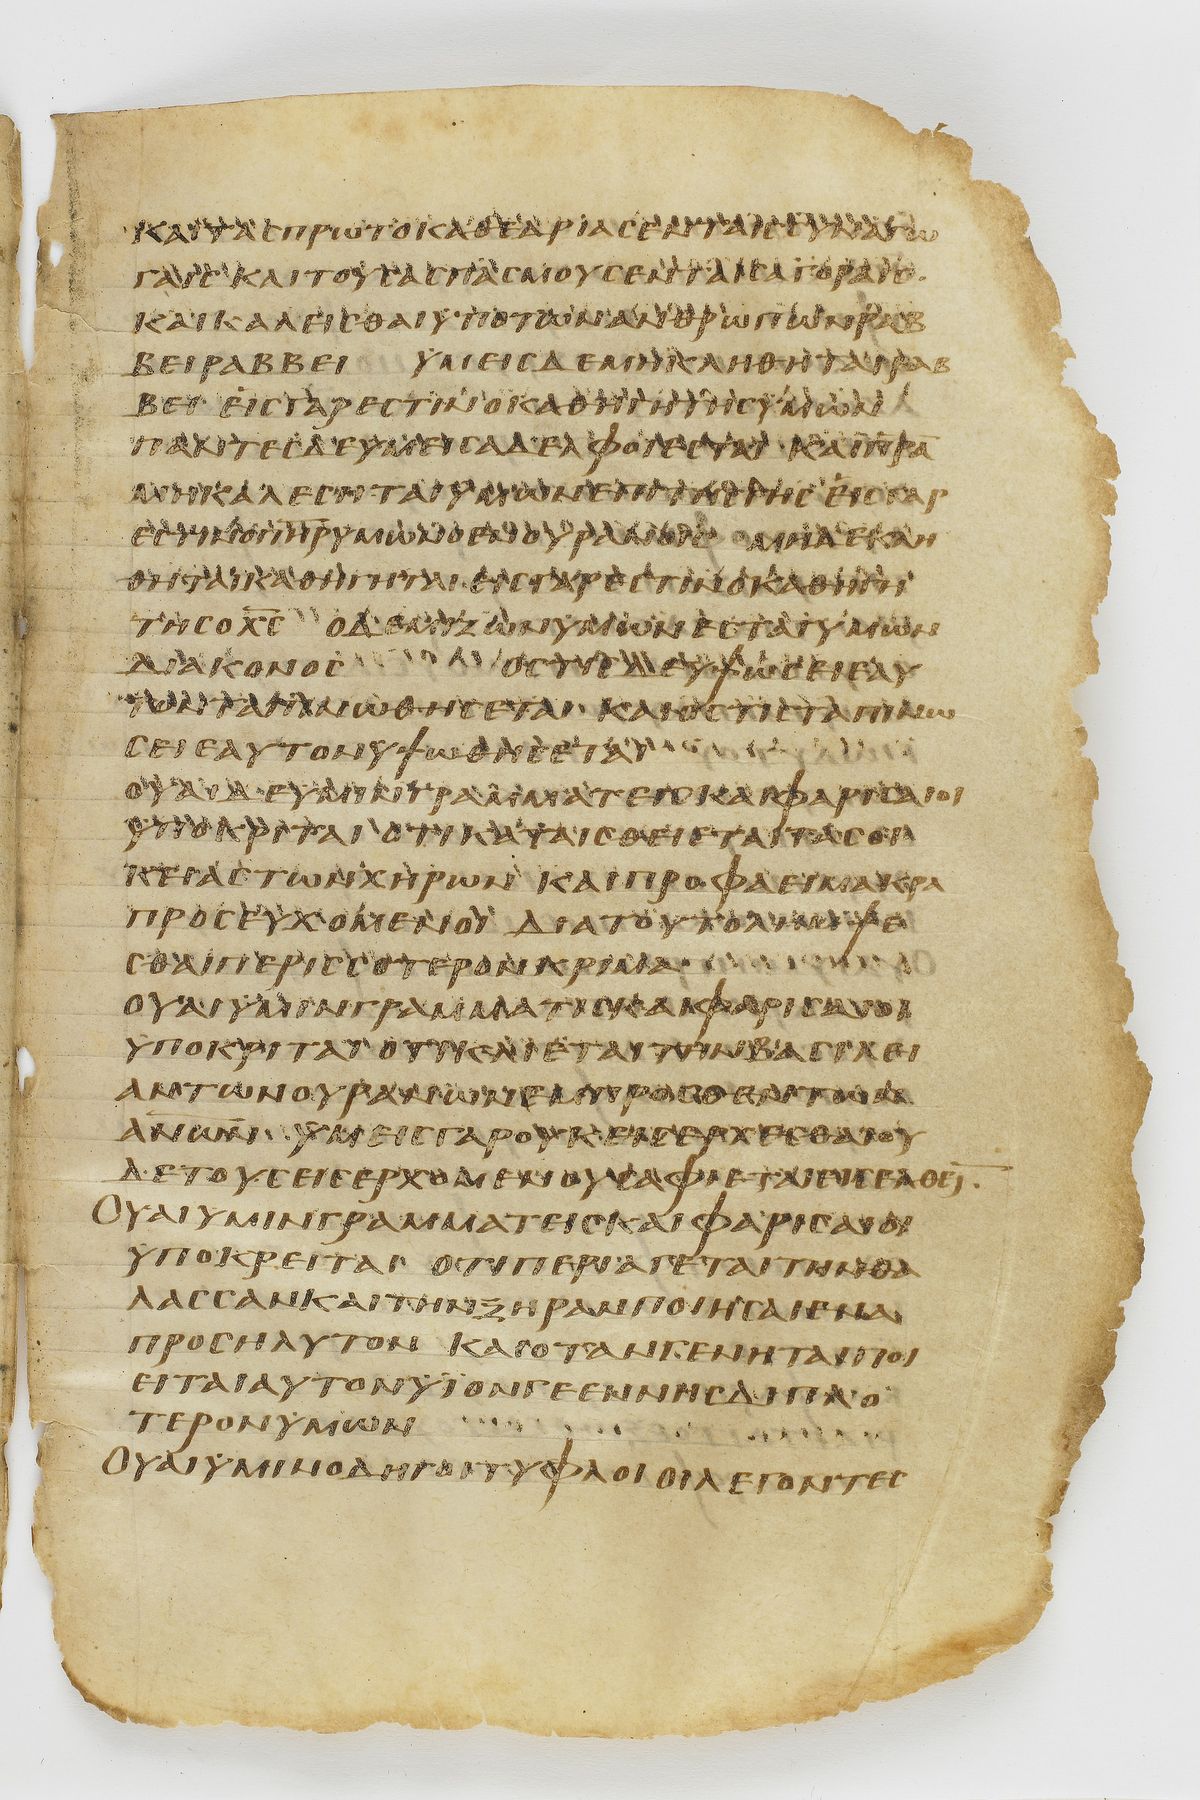 ΚΑΙΤΑСΠΡѠΤΟΚΑΘΕΔΡΙΑСΕΝΤΑΙССΥΝΑΓѠ
ΓΑΙС ΚΑΙΤΟΥСΑСΠΑСΜΟΥСΕΝΤΑΙСΑΓΟΡΑΙС.
ΚΑΙΚΑΛΕΙСΘΑΙΥΠΟΤѠΝΑΝΘΡѠΠѠΝΡΑΒ
ΒΕΙΡΑΒΒΕΙ ΥΜΕΙСΔΕΜΗΚΛΗΘΗΤΑΙΡΑΒ
ΒΕΙ ΕΙСΓΑΡΕСΤΙΝΟΚΑΘΗΓΗΤΗСΥΜѠΝ
ΠΑΝΤΕСΔΕΥΜΕΙСΑΔΕΛΦΟΙΕСΤΑΙ ΚΑΙΠ̅Ρ̅Α̅
ΜΗΚΑΛΕСΗΤΑΙΥΜѠΝΕΠΙΤΗСΓΗС ΕΙСΓΑΡ
ΕСΤΙΝΟΠ̅Η̅Ρ̅ΥΜѠΝΟΕΝΟΥΡΑΝΟΙС ΜΗΔΕΚΛΗ
ΘΗΤΑΙΚΑΘΗΓΗΤΑΙ ΕΙСΓΑΡΕСΤΙΝΟΚΑΘΗΓΗ
ΤΗСΟΧ̅С̅ ΟΔΕΜΙΖѠΝΥΜѠΝΕСΤΑΙΥΜѠΝ
ΔΙΑΚΟΝΟС ΟСΤΙСΔΕΥΨѠСΕΙΕΑΥ
ΤΟΝΤΑΠΙΝѠΘΗСΕΤΑΙ ΚΑΙΟСΤΙСΤΑΠΙΝѠ
СΕΙΕΑΥΤΟΝΥΨѠΘΗСΕΤΑΙ
ΟΥΑΙΔΕΥΜΙΝΓΡΑΜΜΑΤΕΙСΚΑΙΦΑΡΙСΑΙΟΙ
ΥΠΟΚΡΙΤΑΙ ΟΤΙΚΑΤΑΙСΘΕΙΕΤΑΙΤΑСΟΙ
ΚΕΙΑСΤѠΝΧΗΡѠΝ ΚΑΙΠΡΟΦΑСΕΙΜΑΚΡΑ
ΠΡΟСΕΥΧΟΜΕΝΟΙ ΔΙΑΤΟΥΤΟΛΗΜΨΕ
СΘΑΙΠΕΡΙССΟΤΕΡΟΝΚΡΙΜΑ
ΟΥΑΙΥΜΙΝΓΡΑΜΜΑΤΙСΚΑΙΦΑΡΙСΑΙΟΙ
ΥΠΟΚΡΙΤΑΙ ΟΤΙΚΛΙΕΤΑΙΤΗΝΒΑСΙΛΕΙ
ΑΝΤѠΝΟΥΡΑΝѠΝΕΜΠΡΟСΘΕΝΤѠΝ
Α̅Ν̅Ѡ̅Ν̅ ΥΜΕΙСΓΑΡΟΥΚΕΙСΕΡΧΕСΘΑΙΟΥ
ΔΕΤΟΥСΕΙСΕΡΧΟΜΕΝΟΥСΑΦΙΕΤΑΙΕΙСΕΛΘΕΙ̅.
ΟΥΑΙΥΜΙΝΓΡΑΜΜΑΤΕΙСΚΑΙΦΑΡΙСΑΙΟΙ
ΥΠΟΚΡΕΙΤΑΙ ΟΤΙΠΕΡΙΑΓΕΤΑΙΤΗΝΘΑ
ΛΑССΑΝΚΑΙΤΗΝΞΗΡΑΝΠΟΙΗСΑΙΕΝΑ
ΠΡΟСΗΛΥΤΟΝ ΚΑΙΟΤΑΝΓΕΝΗΤΑΙΠΟΙ
ΕΙΤΑΙΑΥΤΟΝΥΙΟΝΓΕΕΝΝΗСΔΙΠΛΟ
ΤΕΡΟΝΥΜѠΝ
ΟΥΑΙΥΜΙΝΟΔΗΓΟΙΤΥΦΛΟΙΟΙΛΕΓΟΝΤΕС